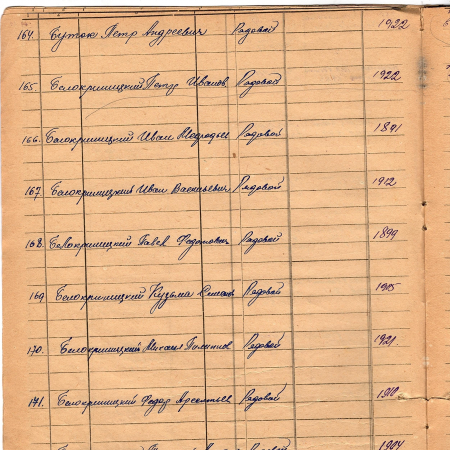 164. Буток Петр Андреевич Рядовой 1922
165. Белокриницкий Петр Иванов Рядовой 1922
166. Белокриницкий Иван Рядовой 1891
167. Белокриницкий Иван Васильевич Рядовой 1912
168. Белокриницкий Павел Федотович Рядовой 1899
169. Белокриницкий Кузьма Рядовой 1905
170. Белокриницкий Михаил Рядовой 1921.
171. Белокриницкий Федор Арсентьев Рядовой 1910
1904